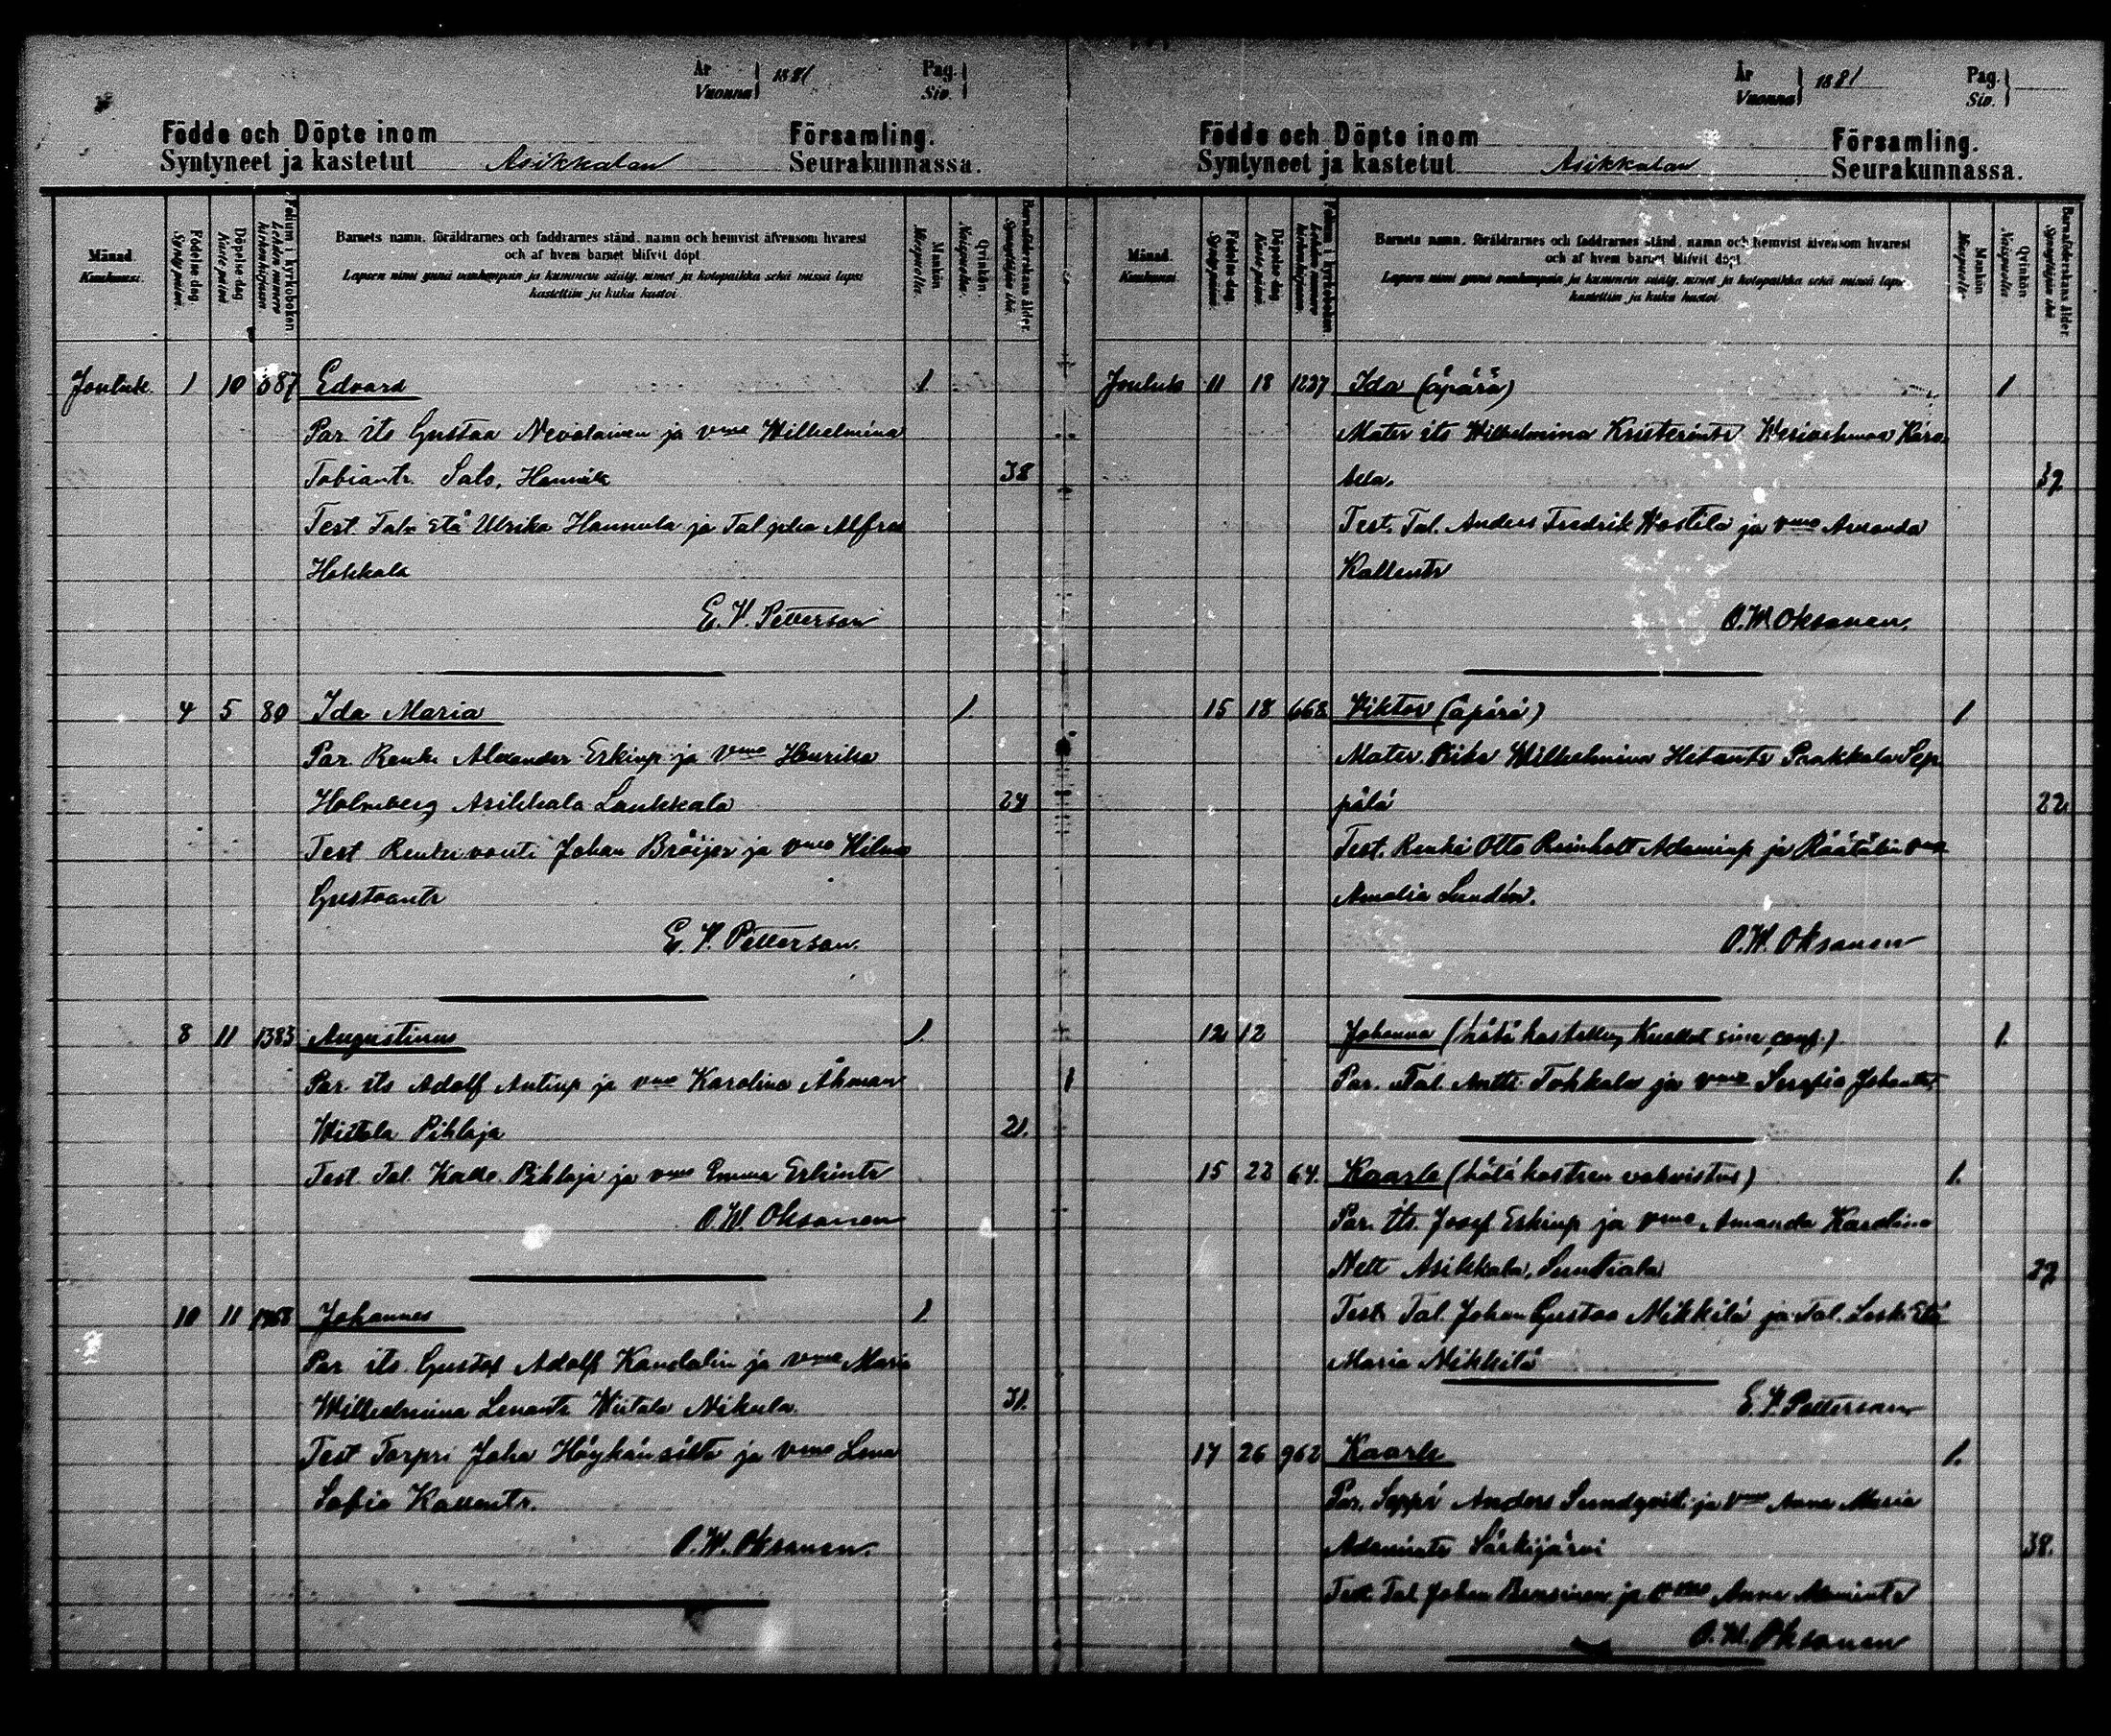 År
Vuonna 1881
Pag.
Siv.
Födde och Döpte inom Församling.
Syntyneet ja kastetut Asikkalan Seurakunnassa.
Månad.
Kuukausi.
Födelse-dag.
Syntymäpäivä.
Döpelse-dag
Kastepäivä
Folium i kyrkoboken.
Lehden numero kirkonkirjassa
Barnets namn, föräldrarnes och faddrarnes stånd, namn och hemvist äfvensom hvarest
och af hvem barnet blifvit döpt.
Lapsen nimi ynnä vanhempain ja kummein sääty, nimet ja kotopaikka sekä missä lapsi
kastettiin ja kuka kastoi.
Mankön
Miespuolta.
Qvinkön.
Naispuolta.
Barnaföderskans ålder.
Synnyttäjän ikä.
Jouluk. 1 10 587 Edvard 1
Par. its Gustaa Nevalainen ja vmo Wilhelmina
Tobiantr. Salo, Hannila 38
Test. Tal. Etå Ulrika Hannula ja Tal. Alfred
Hokkala
E. V. Petterson
4 5 80 Ida Maria 1.
Par. Renki Alexander Erkinp ja vmo Henrika
Holmberg Asikkala Laukkala 24
Test Renkivouti Johan Bröijer ja vmo Hilma
Gustaantr
E. V. Petterson.
8 11 1383 Augustinus 1.
Par. its Adolf Antinp ja vmo Karolina Åhman
Wiitala Pihlaja 21.
Test. Tal. Kalle Pihlaja ja vmo Emma Erkintr
O. W. Oksanen
10 11 1368 Johannes 1.
Par. its. Gustaf Adolf Kandolin ja vmo Maria
Wilhelmina Lenantr Wiitala Nikula. 31.
Test Torpri Juha Höykänsilta ja vmo Lena
Sofia Kallentr.
O. W. Oksanen.
År
Vuonna 1881
Pag.
Siv.
Födde och Döpte inom Församling.
Syntyneet ja kastetut Asikkalan Seurakunnassa.
Månad.
Kuukausi
Födelse-dag.
Syntymäpäivä.
Döpelse-dag
Kastepäivä.
Folium i kyrkoboken.
Lehden numero kirkonkirjassa.
Barnets namn, föräldrarnes och faddrarnes stånd, namn och hemvist äfvensom hvarest
och af hvem barnet blifvit döpt.
Lapsen nimi ynnä vanhempain ja kummein sääty, nimet ja kotopaikka sekä missä lapsi
kastettiin ja kuka kastoi.
Mankön
Miespuolta
Qvinkön
Naispuolta
Barnaföderskans ålder.
Synnyttäjän ikä.
Jouluk 11 18 1227 Ida (äpärä) 1
Mater its Wilhelmina Kristerintr Wesivehmaa
Test. Tal. Anders Fredrik Wostila ja vmo Amanda
Kallentr
O. W. Oksanen.
15 18 668 Viktor (äpärä) 1
Mater. Piika Wilhelmina Paakkala Sep
pälä 22.
Test. Renki Otto Reinholt Adaminp ja Räätälin vmo
Amalia Lundén.
O. W. Oksanen
12 12 Johanna (hätä kastettu, Kuollut sine conf.) 1.
Par. Tal. Antti Tohkala ja vmo Serafia Johantr.
15 22 64. Kaarle (hätä kasteen vahvistus) 1.
Par. its. Josef Erkinp ja vmo Amanda Karolina
Nett Asikkala, Suntiala 27
Test. Tal. Johan Gustaa Mikkilä ja Tal. Lesk. Etå
Maria Mikkilä
E. V. Petterson
17 26 962 Kaarle 1.
Par. Seppä Anders Sundqvist ja vmo Anna Maria
Adamintr Särkijärvi 38.
Test. Tal Johan ja vmo Anna
O. W. Oksanen